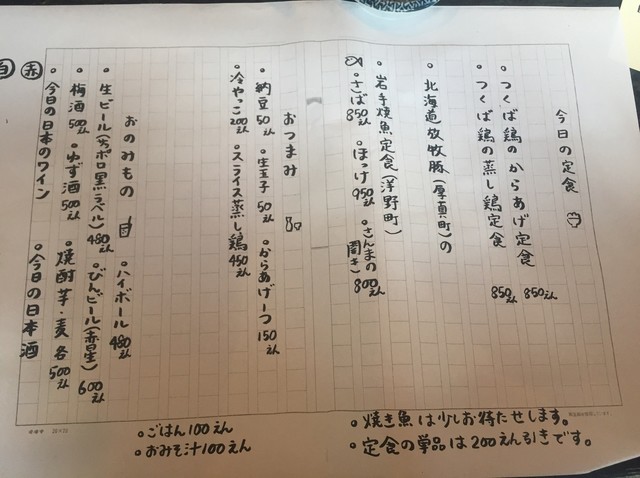 今日の定食
・つくば鶏のからあげ定食 850えん
・つくば鶏の蒸し鶏定食 850えん
・北海道放牧豚(厚真町)の
・岩手焼魚定食(洋野町)
・さば 850えん ・ほっけ 950えん ・さんまの開き 800えん
おつまみ
・納豆 50えん ・生玉子 50えん ・からあげ一つ 150えん
・冷やっこ 200えん ・スライス蒸し鶏 450えん
おのみもの ・ハイボール 480えん
・生ビール(サッポロ黒ラベル) 480えん ・びんビール(赤星) 600えん
・梅酒 500えん ・ゆず酒 500えん ・焼酎 芋・麦 各 500えん
・今日の日本のワイン ・今日の日本酒
赤 白
・焼き魚は少しお待たせします。
・定食の単品は200えん引きです。
・ごはん100えん
・おみそ汁100えん
20×20